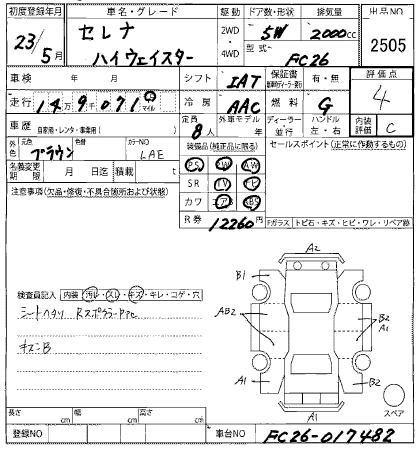 初度登録年月 車名・グレード 駆動 ドア数・形状 排気量 出品NO
23/5月 セレナ ハイウェイスター 2WD ・ 4WD 5W 2000cc 2505
型式 FC26
車検 年 月 シフト IAT 保証書 有・無 評価点
走行 14万9千071 km マイル 冷房 AAC 燃料 G 4
車歴 自家用・レンタ・事業用( ) 定員 8人 外車モデル年 ディーラー 並行 ハンドル 左・右 内装評価 C
外色 元色 ブラウン 色替 カラーNO LAE 装備品(純正品に限る) セールスポイント(正常に作動するもの)
名義変更期限 月 日迄 積載 t PS PW AW
注意事項(欠品・修復・不具合箇所および状態) SR TV ナビ
カワ エアB ABS
R券 12260円 Fガラス トビ石・キズ・ヒビ・ワレ・リペア跡
A2
B1
AB2 B2
A1
検査員記入 内装 汚レ・スレ・キズ・キレ・コゲ・穴
シートヘタリ
キズ B
A1 B2
A1 スペア
長さ cm 幅 cm 高さ cm
登録NO 車台NO FC26-017482